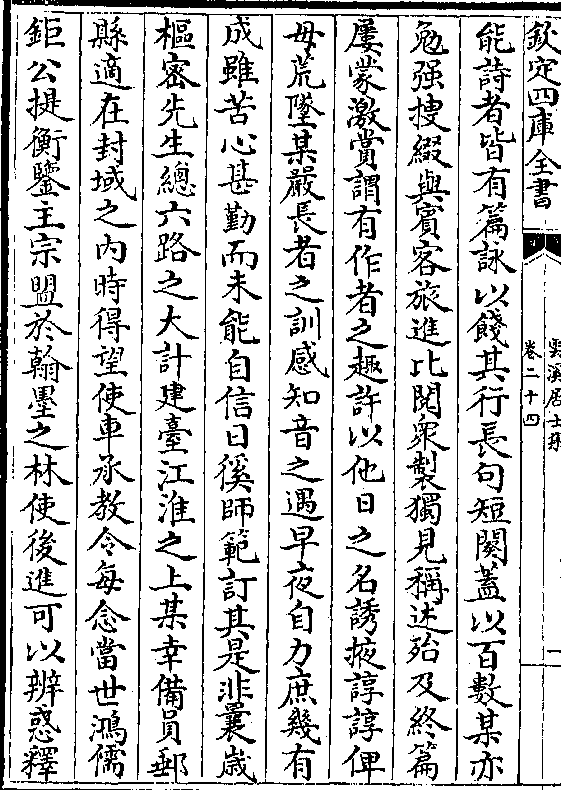 欽定四庫全書
雲溪居士集
卷二十四
一
能詩者皆有篇詠以餞其行長句短闋蓋以百數某亦
勉强捜綴與賓客旅進比閱衆製獨見稱述殆及終篇
屢蒙激賞謂有作者之趣許以他日之名誘掖諄諄俾
毋荒墜某嚴長者之訓感知音之遇早夜自力庶幾有
成雖苦心甚勤而未能自信日徯師範訂其是非曩歲
樞密先生總六路之大計建臺江淮之上某幸備員郵
縣適在封域之内時得望使車承教令每念當世鴻儒
鉅公提衡鑒主宗盟於翰墨之林使後進可以辨惑釋